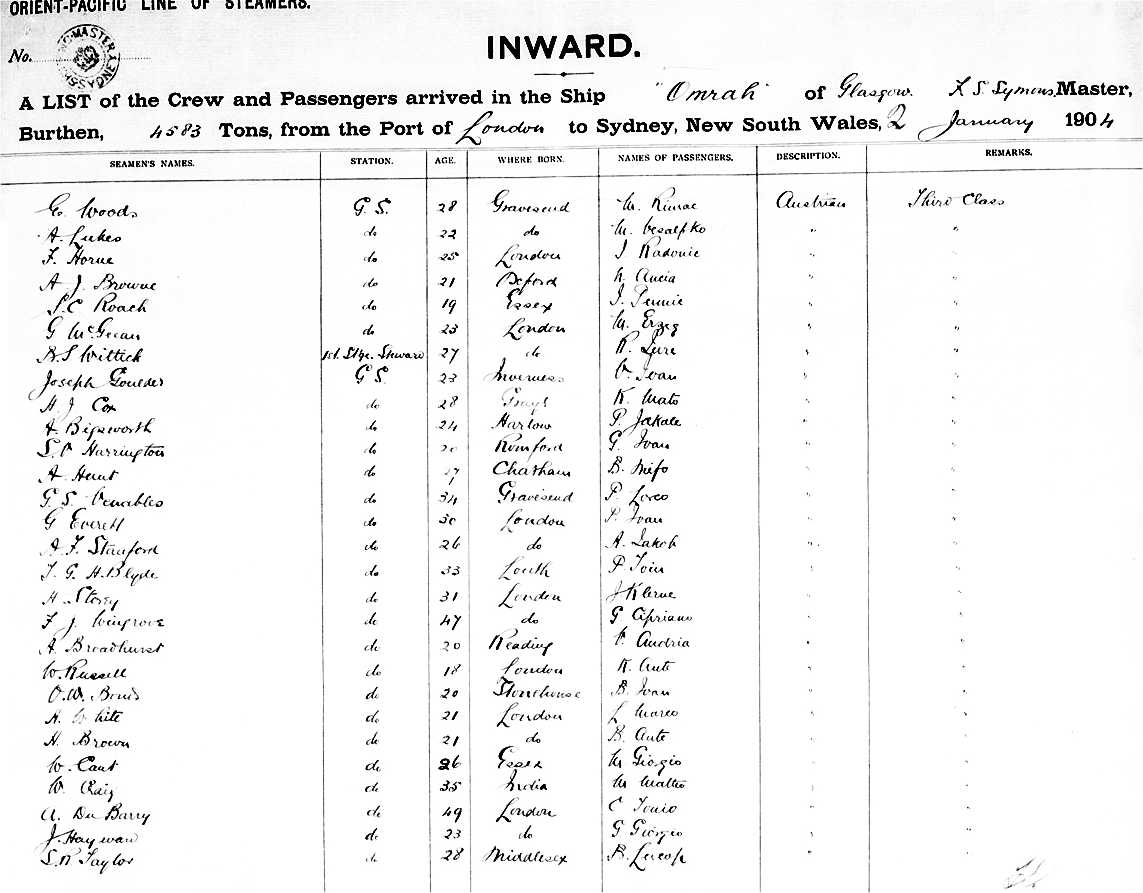 ORIENT-PACIFIC LINE OF STEAMERS.
INWARD.
No.
MASTER SYDNEY
A LIST of the Crew and Passengers arrived in the Ship "Omrah" of Glasgow. Symons, Master,
Burthen, 4583 Tons, from the Port of London to Sydney, New South Wales, 2 January 1904
SEAMEN'S NAMES. STATION. AGE. WHERE BORN. NAMES OF PASSENGERS. DESCRIPTION. REMARKS.
Woods G.S. 28 Gravesend M. Rimac Austrian Third Class
A. Lukes do 22 do M. " "
F. Horne do 25 London J Radonic " "
A J. Browne do 21 Deford Ancia " "
S.C Roach do 19 Essex J. " "
G McGecan do 23 London M. Erzeg " "
Wittick 1st. Stge. Steward 27 do R. Jure " "
Joseph Goulder G S. 23 Inverness Ivan " "
H J Cox do 28 Grays K Mato " "
A Bigsworth do 24 Harlow P. Jakale " "
Harrington do 20 Romford G. Ivan " "
A Hunt do Chatham B. " "
G. S. Venables do 34 Gravesend P " "
G Everett do 30 London P. Ivan " "
A. F. Stanford do 26 do A. Jakob " "
G. H. Blyde do 33 Louth P " "
H Storey do 31 London J " "
F J. Wingrove do 47 do G Cipriano " "
A. Broadhurst do 20 Reading Andria " "
W. Russell do 18 London K. Ante " "
O.W. Bond do 20 Stonehouse B. Ivan " "
H. White do 21 London Marco " "
H. Brown do 21 do B. Ante " "
W. Cant do 26 Essex M Giorgio " "
W. Craig do 35 India M Matteo " "
A. Du Barry do 49 London C " "
J. Hayward do 23 do G Giorgio " "
Taylor do 28 Middlesex B. " "